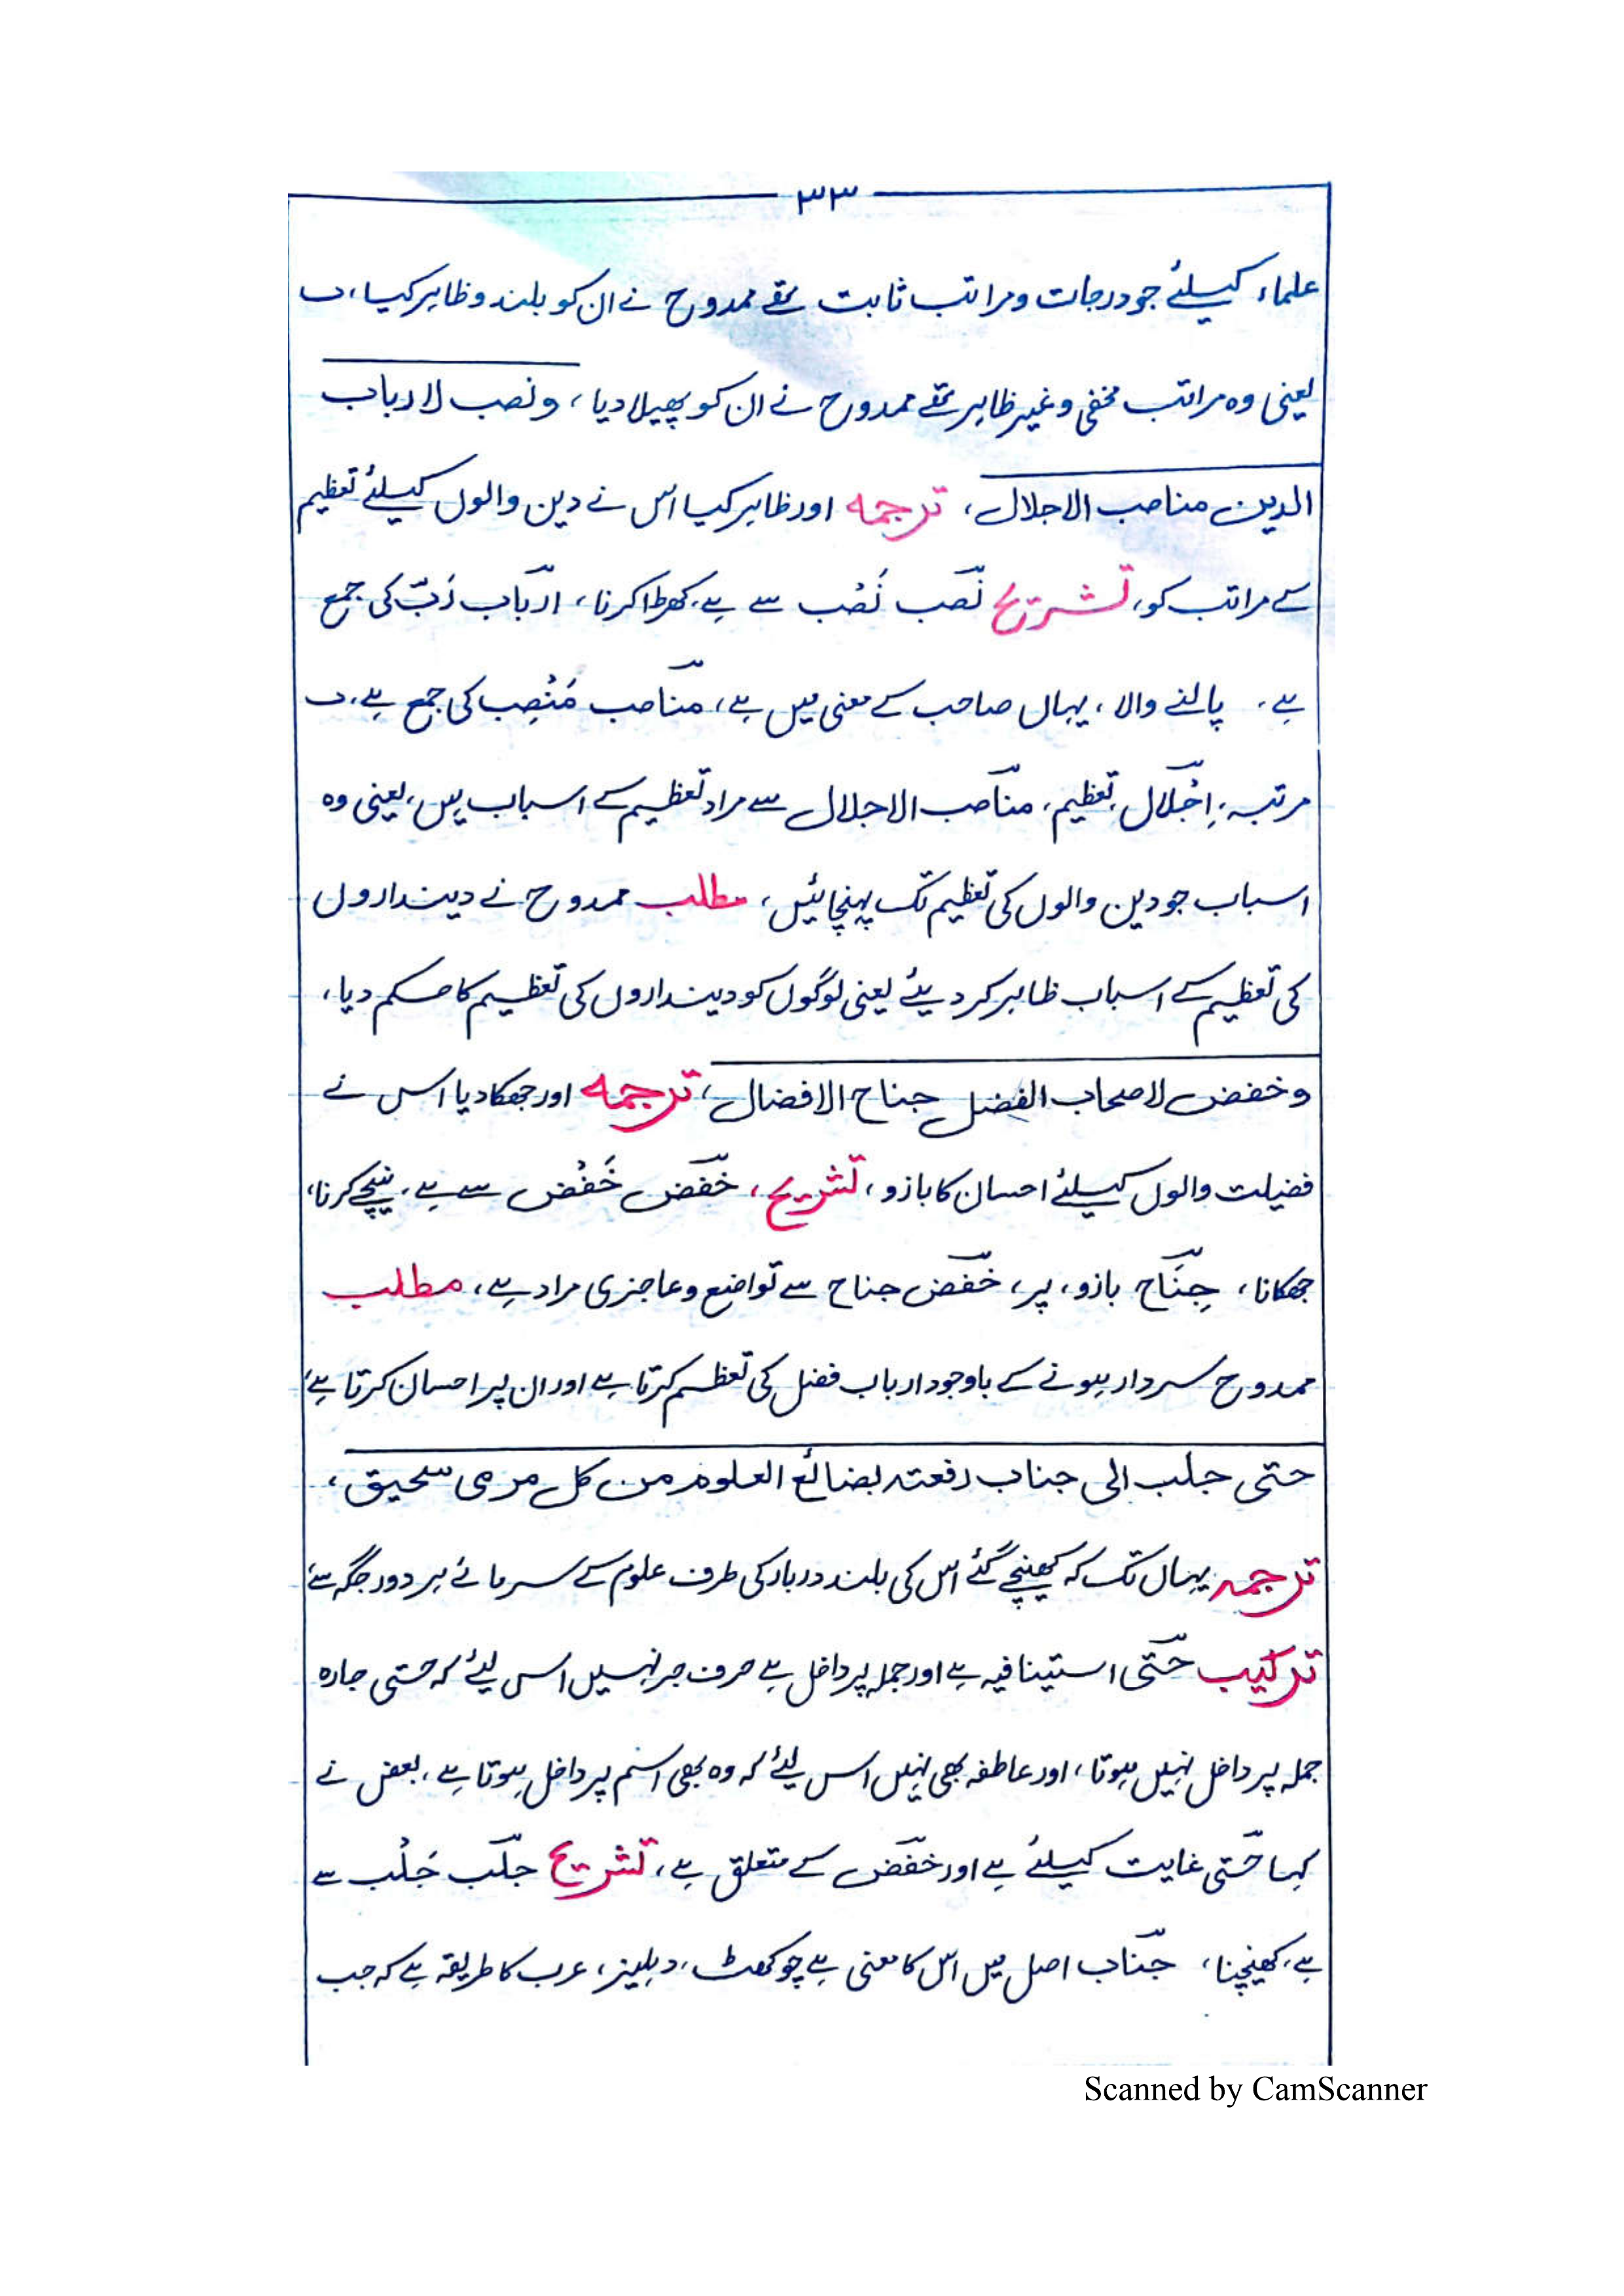 ۳۳
علماء کیلئے جو درجات ومراتب ثابت تھے ممدوح نے ان کو بلند وظاہر کیا،
یعنی وہ مراتب مخفی وغیر ظاہر تھے ممدوح نے ان کو پھیلا دیا، ونصب لارباب
الدین مناصب الاجلال، ترجمہ اور ظاہر کیا اس نے دین والوں کیلئے تعظیم
کے مراتب کو، تشریح نَصَب نَصْب سے ہے، کھڑا کرنا، ارباب رَبّ کی جمع
ہے، پالنے والا، یہاں صاحب کے معنی میں ہے، مناصب مَنْصِب کی جمع ہے،
مرتبہ، اِجْلال، تعظیم، مناصب الاجلال سے مراد تعظیم کے اسباب ہیں، یعنی وہ
اسباب جو دین والوں کی تعظیم تک پہنچائیں، مطلب ممدوح نے دینداروں
کی تعظیم کے اسباب ظاہر کر دیئے یعنی لوگوں کو دینداروں کی تعظیم کا حکم دیا،
وخفض لاصحاب الفضل جناح الافضال، ترجمہ اور جھکا دیا اس نے
فضیلت والوں کیلئے احسان کا بازو، تشریح، خَفَض خَفْض سے ہے، نیچے کرنا،
جھکانا، جِنَاح بازو، پر، خفض جناح سے تواضع وعاجزی مراد ہے، مطلب
ممدوح سردار ہونے کے باوجود ارباب فضل کی تعظیم کرتا ہے اور ان پر احسان کرتا ہے،
حتی جلب الی جناب رفعتہ بضائع العلوم من کل مرمی سحیق،
ترجمہ یہاں تک کہ کھینچے گئے اس کی بلند دربار کی طرف علوم کے سرمائے ہر دور جگہ سے
ترکیب حَتّٰی استینافیہ ہے اور جملہ پر داخل ہے حرف جر نہیں اس لیئے کہ حتی جارہ
جملہ پر داخل نہیں ہوتا، اور عاطفہ بھی نہیں اس لیئے کہ وہ بھی اسم پر داخل ہوتا ہے، بعض نے
کہا حَتّٰی غایت کیلئے ہے اور خفض کے متعلق ہے، تشریح جلَب جَلْب سے
ہے، کھینچنا، جَناب اصل میں اس کا معنی ہے چوکھٹ، دہلیز، عرب کا طریقہ ہے کہ جب
Scanned by CamScanner